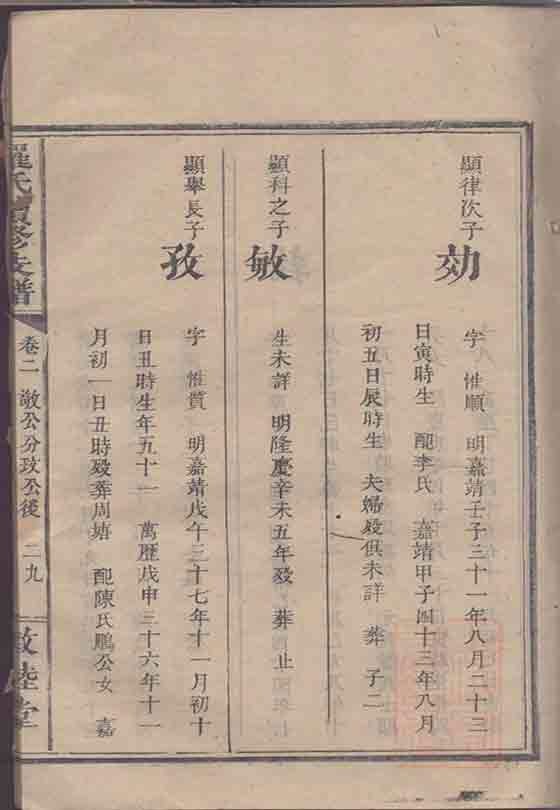 顯律次子
効
字 惟順 明嘉靖壬子三十一年八月二十三
日寅時生 配李氏 嘉靖甲子四十三年八月
初五日辰時生 夫婦歿俱未詳 葬 子二
顯科之子
敏
生未詳 明隆慶辛未五年歿 葬 止
顯舉長子
孜
字 惟質 明嘉靖戊午三十七年十一月初十
日丑時生年五十一 萬歷戊申三十六年十一
月初一日丑時歿葬周塘 配陳氏鵬公女 嘉
羅氏續修支譜
卷二 敞公分玟公後 二九
敦睦堂